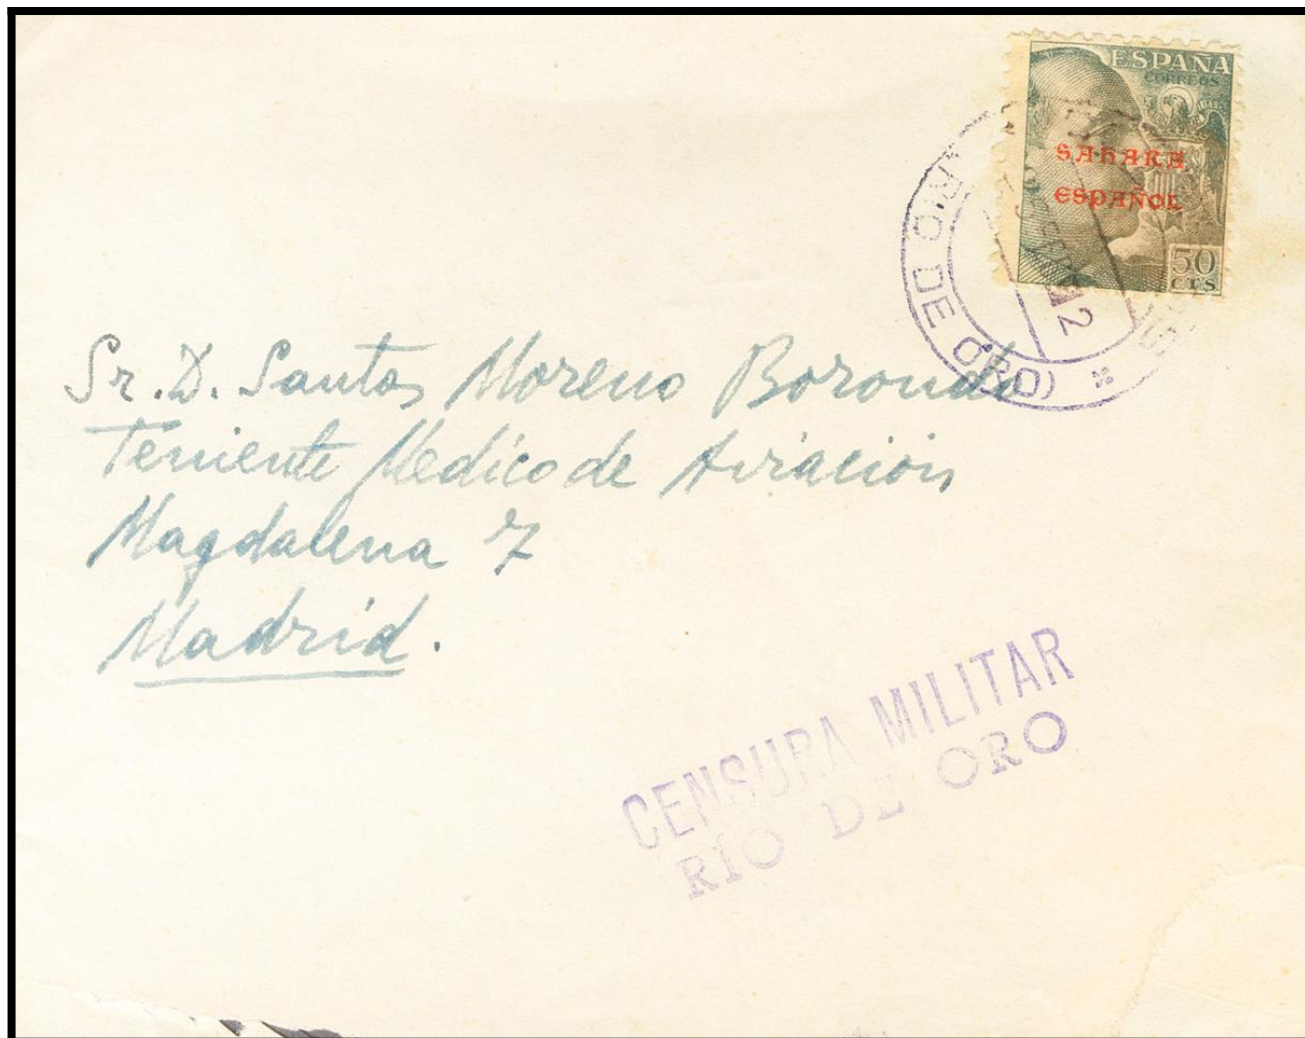 ESPAÑA
CORREOS
SAHARA
ESPAÑOL
50
CTS
(RIO DE ORO)
42
Sr. D. Santos Moreno Borondo
Teniente Medico de Aviación
Magdalena 7
Madrid.
CENSURA MILITAR
RÍO DE ORO